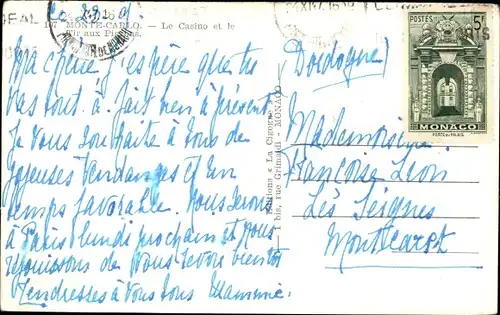 Ce 29. 9.
107 MONTE-CARLO. — Le Casino et le
Tir aux Pigeons
Ma chérie j'espère que tu
vas tout à fait bien à présent
Je vous souhaite à tous de
joyeuses vendanges et un
temps favorable. Nous serons
à Paris lundi prochain et nous
réjouissons de vous revoir bientôt
Tendresses à vous tous Mammie.
Editions « La Cigogne »
1 bis, rue Grimaldi MONACO
POSTES 5F
MONACO
PORTE du PALAIS
(Dordogne)
Mademoiselle
Françoise Léon
Les Seignes
Montcaret